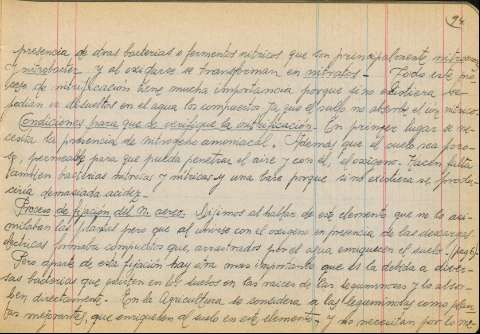 94
presencia de otras bacterias o fermentos nitricos que son principalmente nitrosomonas
y nitrobacter y al oxidarse se transforman en nitratos - Todo este pro-
ceso de nitrificación tiene mucha importancia porque si no existiera se
podian ir disueltos en el agua los compuestos ya que el suelo no absorbe el ion nitrico.
Condiciones para que se verifique la nitrificación. En primer lugar se ne-
cesita la presencia de nitrogeno amoniacal. Ademas que el suelo sea poro-
so, permeable para que pueda penetrar el aire y con el, el oxigeno. Hacen falta
tambien bacterias nitrosas y nitricas y una base porque si no existiera se produ-
ciria demasiada acidez.
Proceso de fijación del N. aereo. Dijimos al hablar de este elemento que no lo asi-
milaban las plantas pero que al unirse con el oxigeno en presencia de las descargas
electricas formaba compuestos que, arrastrados por el agua enriquecen el suelo. (pag 6).
Pero aparte de esta fijación hay otra mas importante que es la debida a diver-
sas bacterias que existen en los suelos en las raices de las leguminosas y lo absor-
ben directamente. En la Agricultura se considera a las leguminosas como plan-
tas mejorantes, que enriquecen al suelo en este elemento y no necesitan por lo